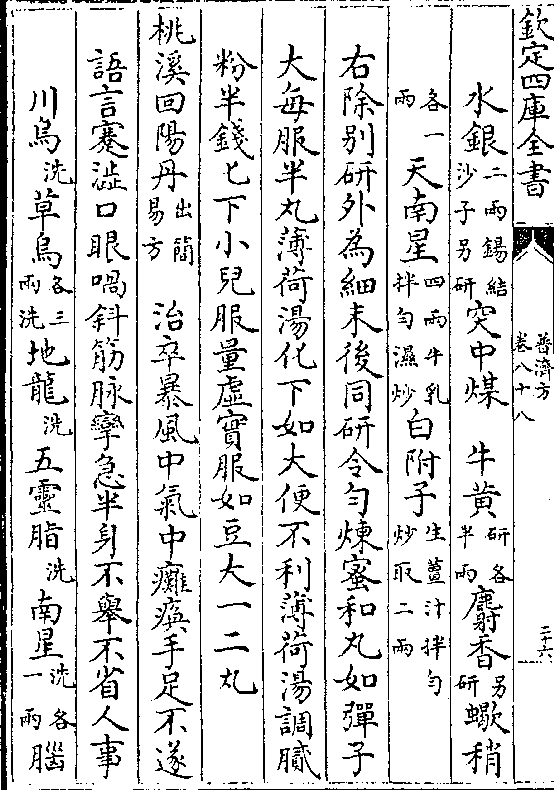 欽定四庫全書
普濟方
卷八十八
二十六
水銀二兩錫結沙子另研 突中煤 牛黄研各半兩 麝香另研 蠍稍
各一兩 天南星四兩牛乳拌勻濕炒 白附子生薑汁拌勻炒取二兩
右除别研外為細末後同研令勻煉蜜和丸如彈子
大每服半丸薄荷湯化下如大便不利薄荷湯調膩
粉半錢匕下小兒服量虚實服如豆大一二丸
桃溪回陽丹出簡易方 治卒暴風中氣中癱瘓手足不遂
語言蹇澁口眼喎斜筋脉攣急半身不舉不省人事
川烏洗 草烏各三兩洗 地龍洗 五靈脂洗 南星洗各一兩 腦